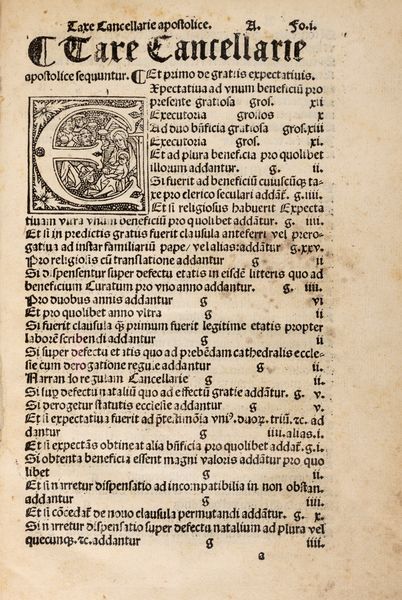 Taxe Cancellarie apostolice. A. Fo.i.
¶ Taxe Cancellarie
apostolice sequuntur. ¶ Et primo de gratiis expectatiuis.
EXpectatiua ad vnum beneficiū pro
presente gratiosa gros. xii
Executoria grossos x
Ad duo bñficia gratiosa gros.xiii
Executoria gros. xi.
Et ad plura beneficia pro quolibet
illorum addantur. g ii.
Si fuerit ad beneficiū cuiuscūqȝ ta-
xe pro clerico seculari addat̃. g.iiii.
Et si religiosus habuerit Expecta
tiuam vltra vnum beneficiū pro quolibet addãtur. g. iiii.
Et si in predictis gratus fuerit clausula anteferri vel prero-
gatiua ad instar familiariū pape/ vel alias: addãtur g.xxv.
Pro religiosis cū translatione addantur g ii
Si dispensentur super defectu etatis in eisdē litteris quo ad
beneficium Curatum pro vno anno addantur. g. iiii.
Pro duobus annis addantur g vi
Et pro quolibet anno vltra g ii
Si fuerit clausula qȝ primum fuerit legitime etatis propter
laborē scribendi addantur g ii
Si super defectu etatis quo ad prebēdam cathedralis eccle-
sie cum derogatione regule addantur g ii.
Narrando regulam Cancellarie g ii.
Si sup̱ defectu nataliū quo ad effectū gratie addãt̃. g. v.
Si derogetur statutis ecclesie addantur g v.
Et si expectatiua fuerit ad vni⁹. duoꝝ. triū. ⁊c. ad
dantur g iiii.alias.i.
Et si expectãs obtineat alia bñficia pro quolibet addat̃. g.i.
Si obtenta beneficia essent magni valoris addãtur pro quo
libet g ii.
Et si narretur dispensatio ad incompatibilia in non obstan.
addantur g iiii.
Et si cōcedat̃ de nouo clausula permutandi addãtur. g. x.
Si narretur dispensatio super defectu natalium ad plura vel
quecunqȝ. ⁊c. addantur g iiii.
a